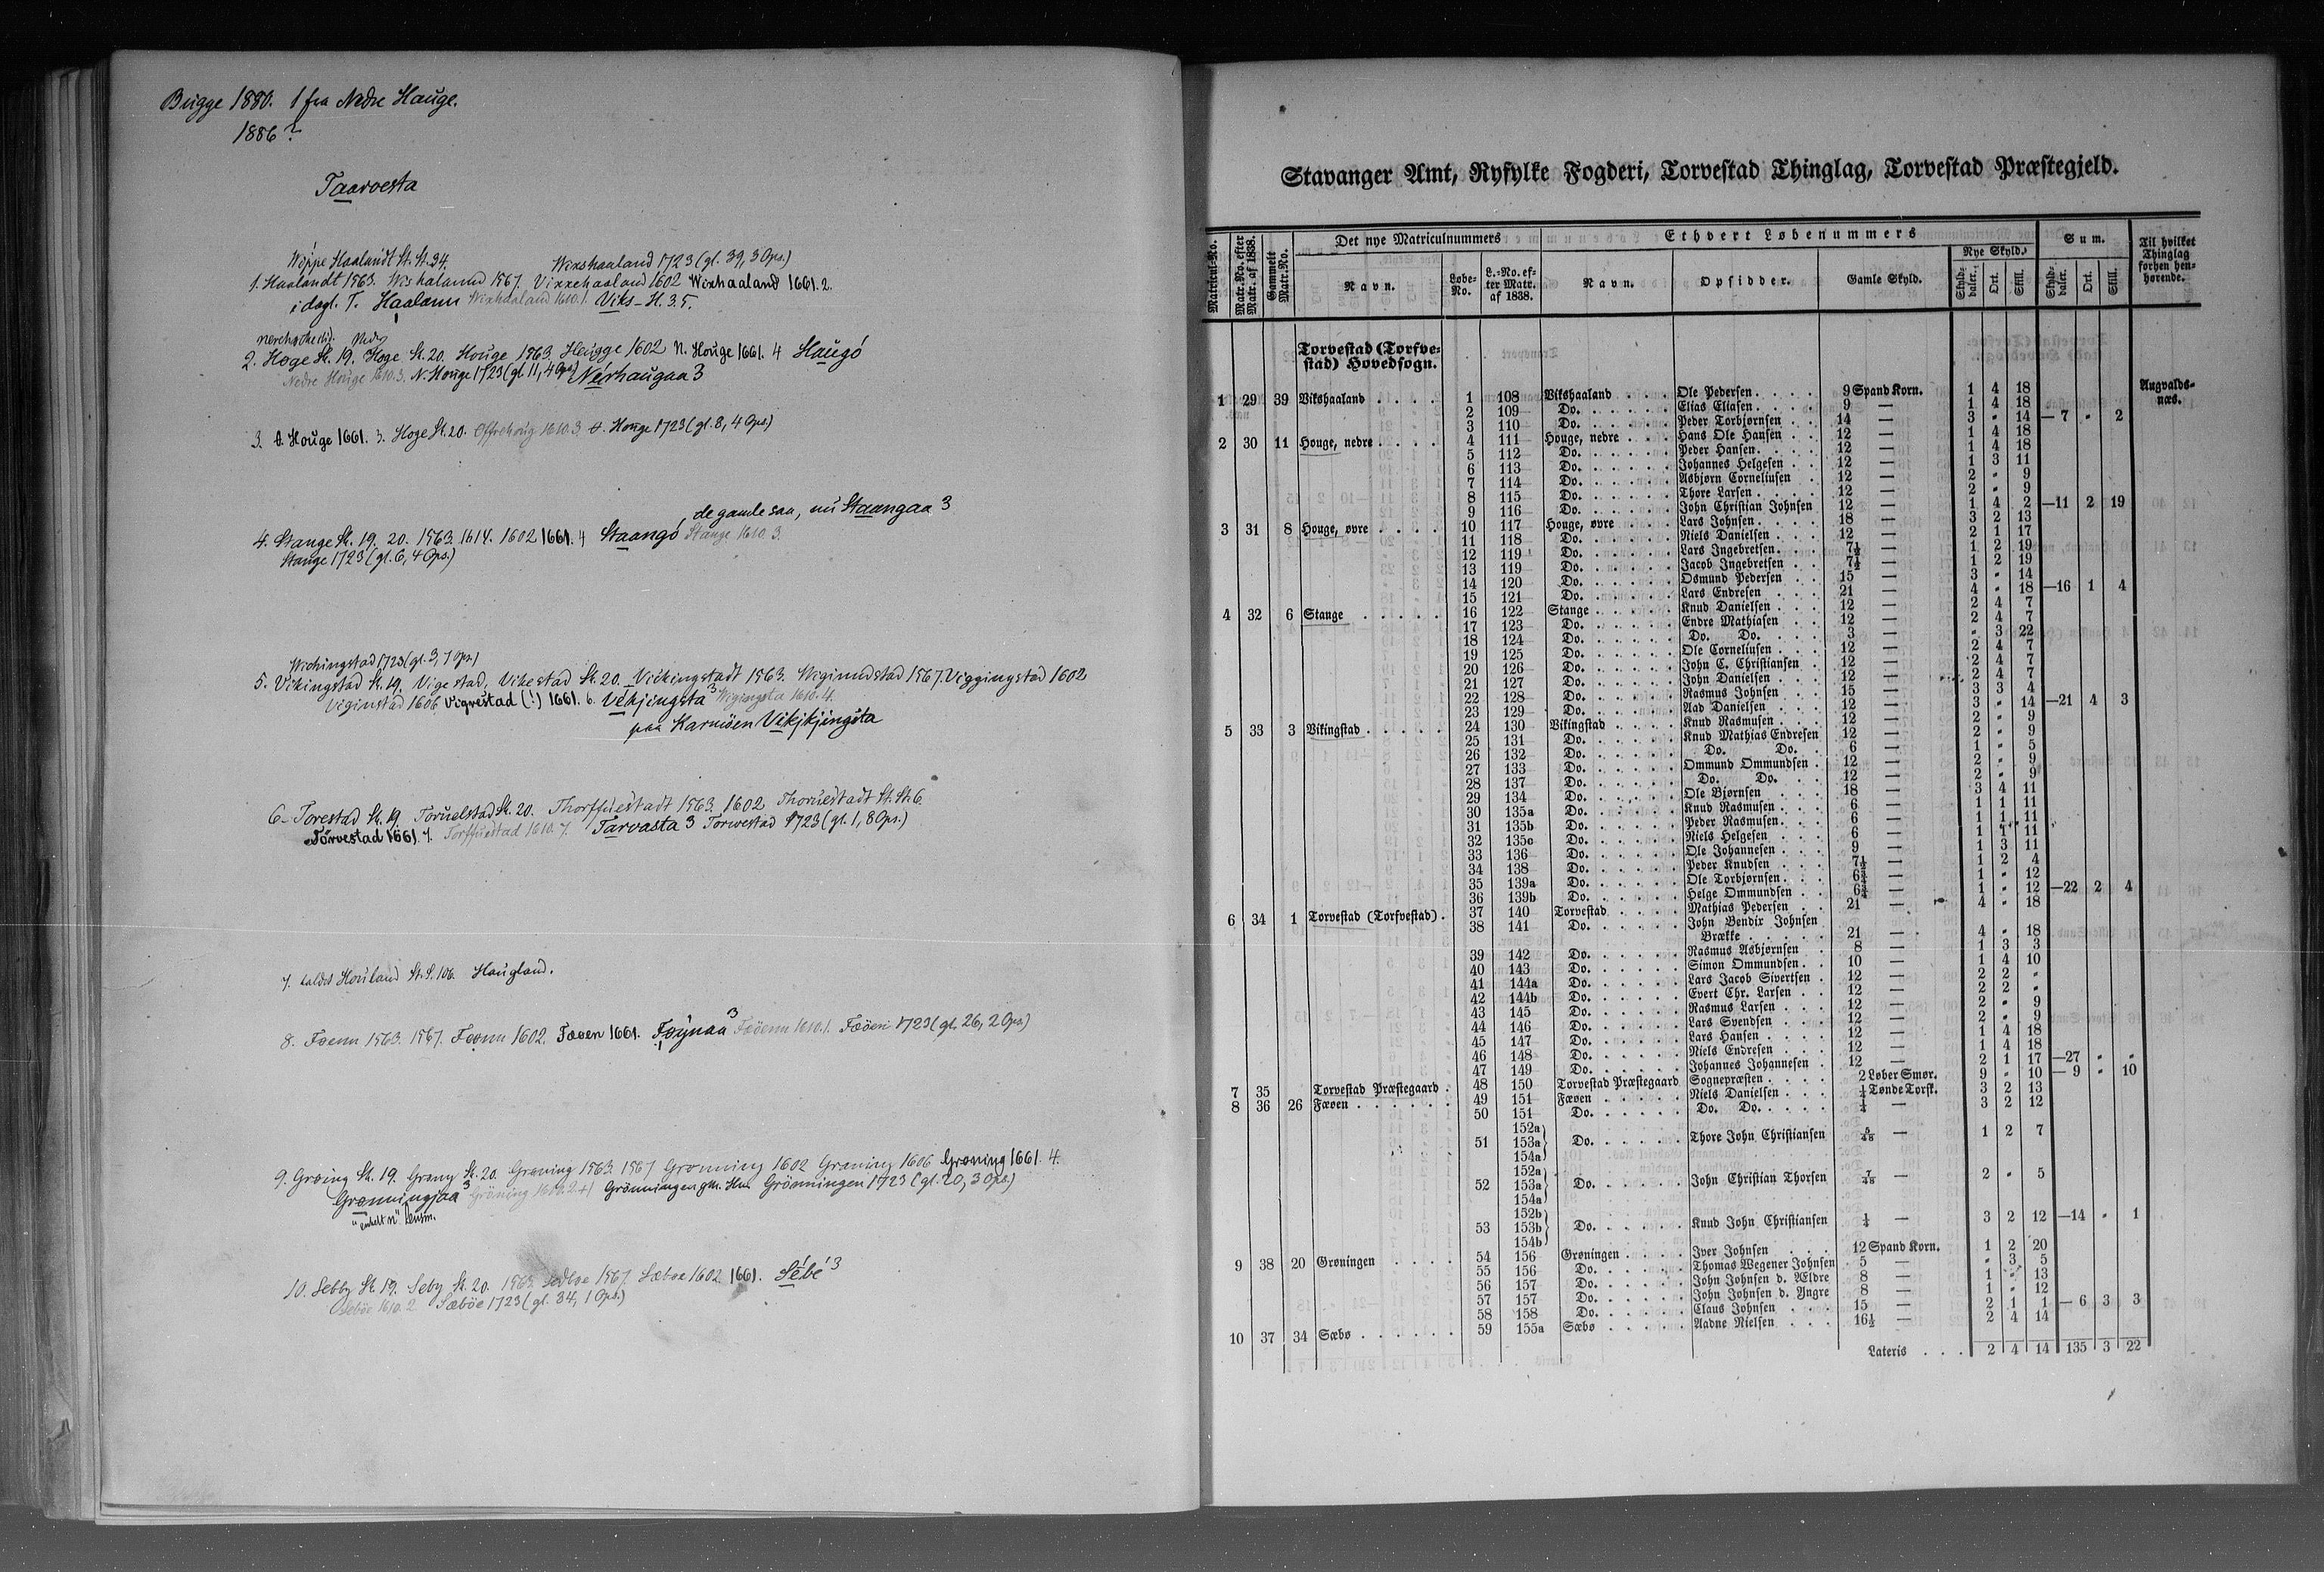 Bugge 1880. 1 fra Nedre Hauge.
1886?
Taarvesta
Wippe Haalandt St. St. 34. Wixshaaland 1723 (gl. 39, 3 Ops.)
1. Haalandt 1563. Wixhalannd 1567. Vixxehaaland 1602 Wixhaaland 1661. 2.
i dagl. T. Haalann Wixhaaland 1610. 1. Viks-H. 3. 5.
2. Hoge St. 19. Hoge St. 20. Houge 1563. Heugge 1602 N. Houge 1661. 4 Haugó
Nedre Houge 1610. 3. N. Houge 1723 (gl. 11, 4 Ops) Nérhaugaa 3
3. Ø. Houge 1661. 3. Hoge St. 20. Offrehoug 1610. 3. Ø. Houge 1723 (gl. 8, 4 Ops.)
de gamle saa, nu Staangaa 3
4. Stange St. 19. 20. 1563. 1614. 1602 1661. 4 Staangó Stange 1610. 3.
Stange 1723 (gl. 6, 4 Ops.)
Wichingstad 1723 (gl. 3, 7 Ops.)
5. Vikingstad St. 19. Vigestad, Vikestad St. 20. Vickingstadt 1563. Wigimdstad 1567. Viggingstad 1602
Viginstad 1606 Vigrestad (!) 1661. 6. Vékjingsta 3 Wigingsta 1610. 4.
paa Karmöen Vikjkjingsta
6. Torestad St. 19. Toruelstad St. 20. Thorffuestadt 1563. 1602 Thoruestadt St. St. 6.
Törvestad 1661. 7. Torffuestad 1610. 7. Tarvasta 3 Torwestad 1723 (gl. 1, 8 Ops.)
7. kaldes Houland St. S. 106. Haugland.
8. Foenn 1563. 1567. Feønn 1602. Fæøen 1661. Fæynaa 3 Fæöenn 1610. 1. Fæöen 1723 (gl. 26, 2 Ops.)
9. Grøing St. 19. Grøny St. 20. Grøning 1563. 1567 Grønning 1602 Grøning 1606 Grøning 1661. 4.
Grønningjaa 3 Gröning 1610. 2+1 Grönningen Grönningen 1723 (gl. 20, 3 Ops.)
"enkelt n" Lensm.
10. Sebby St. 19. Seby St. 20. 1563. Sedboe 1567. Sæbøe 1602 1661. Sébé 3
Seböe 1610. 2. Sæböe 1723 (gl. 34, 1 Ops.)
Stavanger Amt, Ryfylke Fogderi, Torvestad Thinglag, Torvestad Præstegjeld.
Matricul-No. Matr.No. efter Matr. af 1838. Gammelt Matr.No. Det nye Matriculnummers Ethvert Løbenummers Sum. Til hvilket Thinglag forhen henhørende.
Navn. Løbe-No. L.-No. efter Matr. af 1838. Navn. Opsidder. Gamle Skyld. Nye Skyld. Skylddaler. Ort. Skill. Skylddaler. Ort. Skill.
Torvestad (Torfvestad) Hovedsogn.
1 29 39 Vikshaaland 1 108 Vikshaaland Ole Pedersen 9 Spand Korn. 1 4 18 Augvaldsnæs.
2 109 Do. Elias Eliasen 9 — 1 4 18
3 110 Do. Peder Torbjørnsen 14 — 3 " 14 — 7 " 2
2 30 11 Houge, nedre 4 111 Houge, nedre Hans Ole Hansen 12 — 1 4 18
5 112 Do. Peder Hansen 12 — 1 4 18
6 113 Do. Johannes Helgesen 12 — 1 3 11
7 114 Do. Asbjørn Corneliusen 12 — 2 " 9
8 115 Do. Thore Larsen 12 — 2 " 9
9 116 Do. John Christian Johnsen 12 — 1 4 2 —11 2 19
3 31 8 Houge, øvre 10 117 Houge, øvre Lars Johnsen 18 — 3 2 13
11 118 Do. Niels Danielsen 12 — 2 1 17
12 119 Do. Lars Ingebretsen 7½ — 1 2 19
13 119 Do. Jacob Ingebretsen 7½ — 1 2 19
14 120 Do. Osmund Pedersen 15 — 3 " 14
15 121 Do. Lars Endresen 21 — 4 " 18 —16 1 4
4 32 6 Stange 16 122 Stange Knud Danielsen 12 — 2 4 7
17 123 Do. Endre Mathiasen 12 — 2 4 7
18 124 Do. Do. Do. 3 — " 3 22
19 125 Do. Ole Corneliusen 12 — 2 4 7
20 126 Do. John C. Christiansen 12 — 2 4 7
21 127 Do. John Danielsen 12 — 2 4 7
22 128 Do. Rasmus Johnsen 15 — 3 3 4
23 129 Do. Aad Danielsen 12 — 3 " 14 —21 4 3
5 33 3 Vikingstad 24 130 Vikingstad Knud Rasmusen 12 — 2 " 9
25 131 Do. Knud Mathias Endresen 12 — 2 " 9
26 132 Do. Do. Do. 6 — 1 " 5
27 133 Do. Ommund Ommundsen 12 — 2 " 9
28 137 Do. Do. Do. 12 — 2 " 9
29 134 Do. Ole Bjørnsen 18 — 3 4 11
30 135a Do. Knud Rasmusen 6 — 1 1 11
31 135b Do. Peder Rasmusen 6 — 1 1 11
32 135c Do. Niels Helgesen 6 — 1 1 11
33 136 Do. Ole Johannesen 9 — 1 3 11
34 138 Do. Peder Knudsen 7½ — 1 2 4
35 139a Do. Ole Torbjørnsen 6¾ — 1 " 12
36 139b Do. Helge Ommundsen 6¾ — 1 " 12 —22 2 4
6 34 1 Torvestad (Torfvestad) 37 140 Torvestad Mathias Pedersen 21 — 4 " 18
38 141 Do. John Bendix Johnsen
Brække 21 — 4 " 18
39 142 Do. Rasmus Asbjørnsen 8 — 1 3 3
40 143 Do. Simon Ommundsen 10 — 1 4 10
41 144a Do. Lars Jacob Sivertsen 12 — 2 2 "
42 144b Do. Evert Chr. Larsen 12 — 2 2 "
43 145 Do. Rasmus Larsen 12 — 2 " 9
44 146 Do. Lars Svendsen 12 — 2 " 9
45 147 Do. Lars Hansen 12 — 1 4 18
46 148 Do. Niels Endresen 12 — 1 4 18
47 149 Do. Johannes Johannesen 12 — 2 1 17 —27 " "
7 35 Torvestad Præstegaard 48 150 Torvestad Præstegaard Sognepræsten 2 Løber Smør. 9 " 10 — 9 " 10
8 36 26 Fæøen 49 151 Fæøen Niels Danielsen ¼ Tønde Torsk. 3 2 13
50 151 Do. Do. Do. ¼ — 3 2 12
51 152a 153a 154a Do. Thore John Christiansen 5/48 — 1 2 7
52 152a 153a 154a Do. John Christian Thorsen 7/48 — 2 " 5
53 152b 153b 154b Do. Knud John Christiansen ¼ — 3 2 12 —14 " 1
9 38 20 Grøningen 54 156 Grøningen Iver Johnsen 12 Spand Korn. 1 2 20
55 156 Do. Thomas Wegener Johnsen 5 — " 3 5
56 157 Do. John Johnsen d. Ældre 8 — 1 " 13
57 157 Do. John Johnsen d. Yngre 8 — 1 " 12
58 158 Do. Claus Johnsen 15 — 2 1 1 — 6 3 3
10 37 34 Sæbø 59 155a Sæbø Aadne Nielsen 16½ — 2 4 14
Lateris 2 4 14 135 3 22